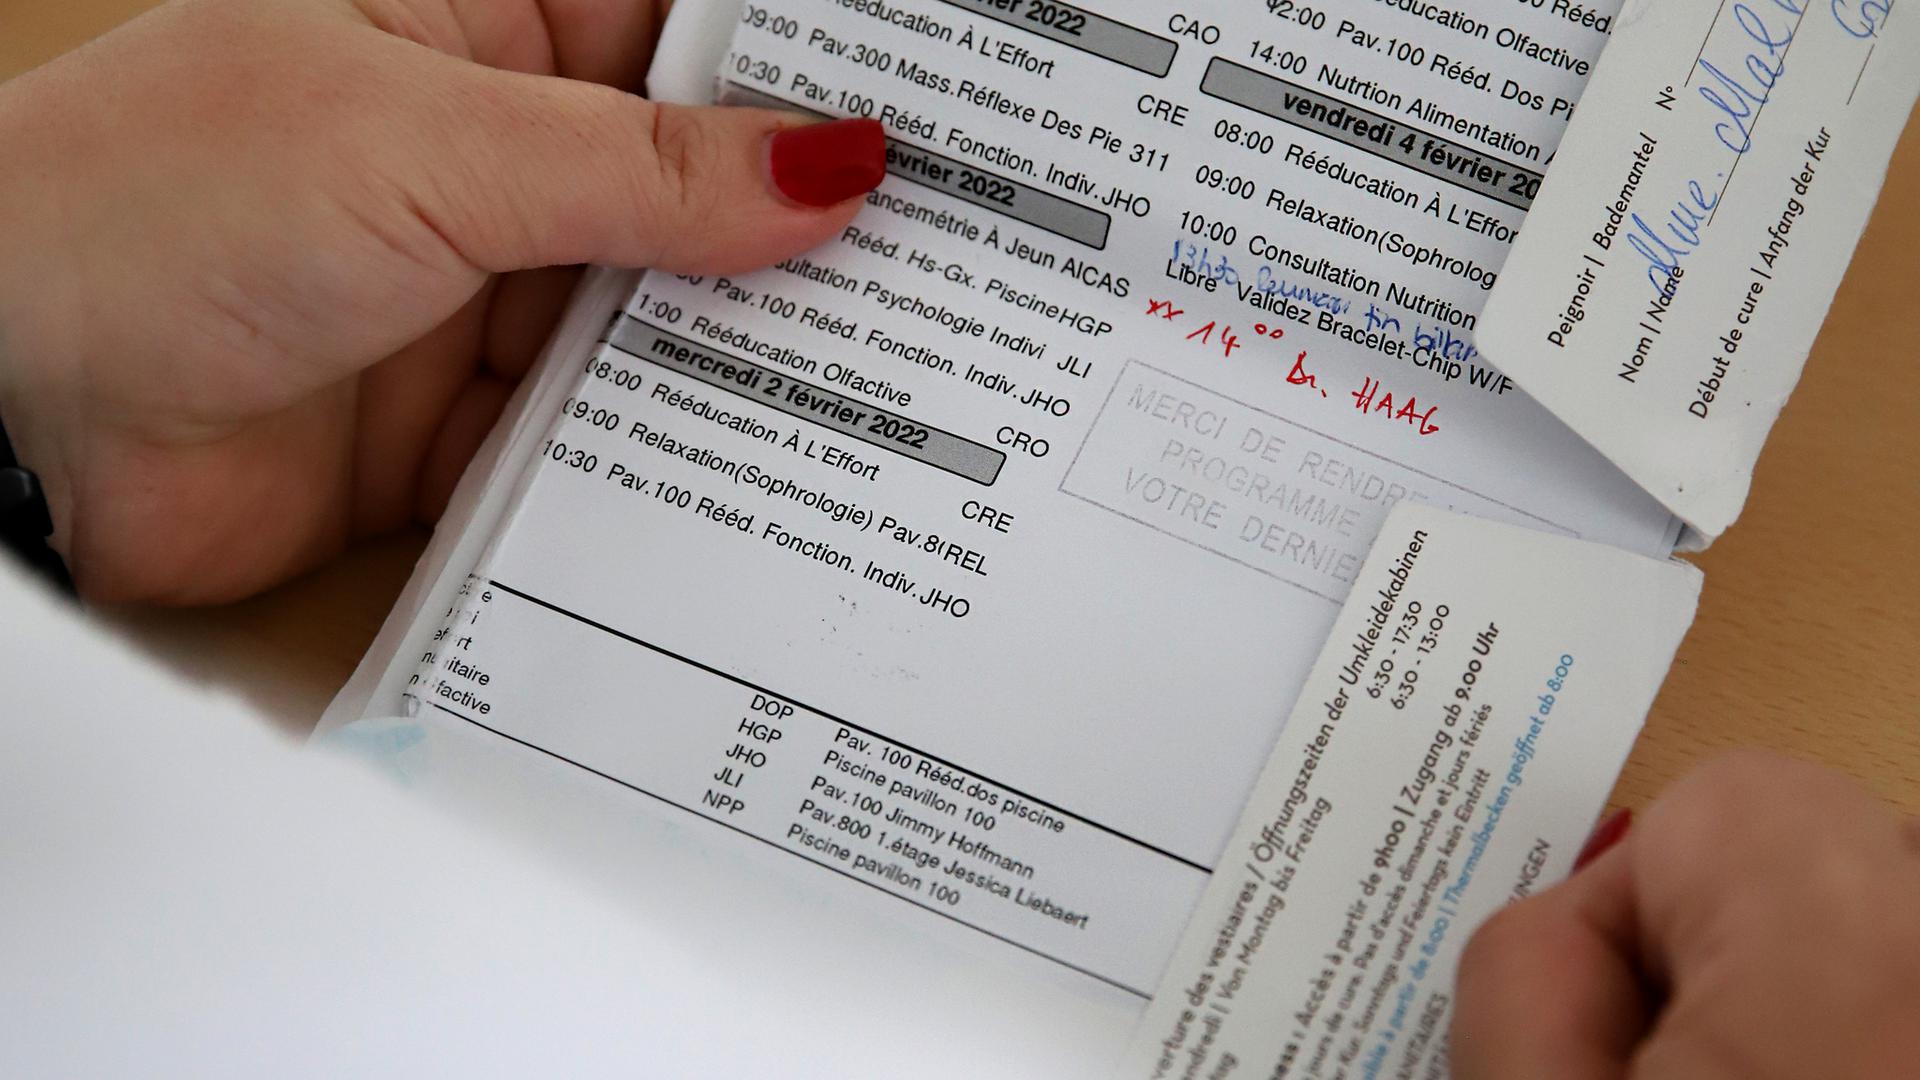 rier 2022
ééducation À L'Effort CAO
09:00 Pav.300 Mass.Réflexe Des Pie 311 CRE
10:30 Pav.100 Rééd. Fonction. Indiv.JHO
évrier 2022
ancemétrie À Jeun AICAS
Rééd. Hs-Gx. PiscineHGP
sultation Psychologie Indivi JLI
Pav.100 Rééd. Fonction. Indiv.JHO
1:00 Rééducation Olfactive CRO
mercredi 2 février 2022
08:00 Rééducation À L'Effort CRE
09:00 Relaxation(Sophrologie) Pav.8(REL
10:30 Pav.100 Rééd. Fonction. Indiv.JHO
ducation Olfactive
12:00 Pav.100 Rééd. Dos Pi
14:00 Nutrtion Alimentation
vendredi 4 février 20
08:00 Rééducation À L'Effor
09:00 Relaxation(Sophrolog
10:00 Consultation Nutrition
13h30 fin bilan
Libre Validez Bracelet-Chip W/F
** 14 °° Dr. HAAG
MERCI DE RENDRE
PROGRAMME
VOTRE DERNIE
itaire
factive
DOP Pav. 100 Rééd.dos piscine
HGP Piscine pavillon 100
JHO Pav.100 Jimmy Hoffmann
JLI Pav.800 1.étage Jessica Liebaert
NPP Piscine pavillon 100
Peignoir | Bademantel N°
Nom | Name Mme.
Début de cure | Anfang der Kur
verture des vestiaires / Öffnungszeiten der Umkleidekabinen
endredi | Von Montag bis Freitag 6:30 - 17:30
6:30 - 13:00
ness : Accès à partir de 9h00 | Zugang ab 9.00 Uhr
jours de cure. Pas d'accès dimanche et jours fériés
r Kur. Sonntags und Feiertags kein Eintritt
à partir de 8:00 | Thermalbecken geöffnet ab 8:00